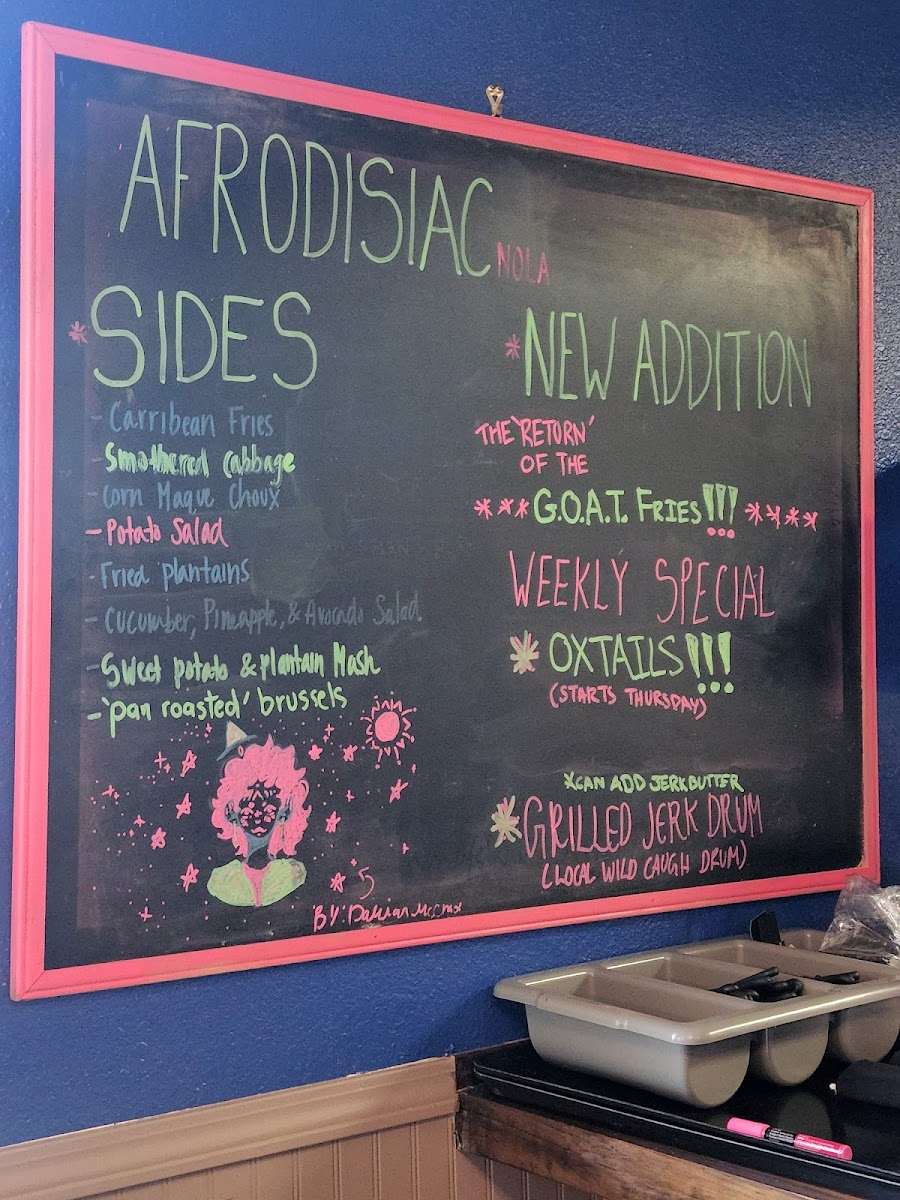 AFRODISIAC NOLA
* SIDES
- Carribean Fries
- Smothered Cabbage
- Corn Maque Choux
- Potato Salad
- Fried plantains
- Cucumber, Pineapple, & Avocado Salad
- Sweet potato & plantain Mash
- 'pan roasted' brussels
BY:
* NEW ADDITION
THE 'RETORN'
OF THE
*** G.O.A.T. FRIES!!! ****
WEEKLY SPECIAL
* OXTAILS!!!
(STARTS THURSDAY)
*CAN ADD JERK BUTTER
* GRILLED JERK DRUM
(LOCAL WILD CAUGH DRUM)